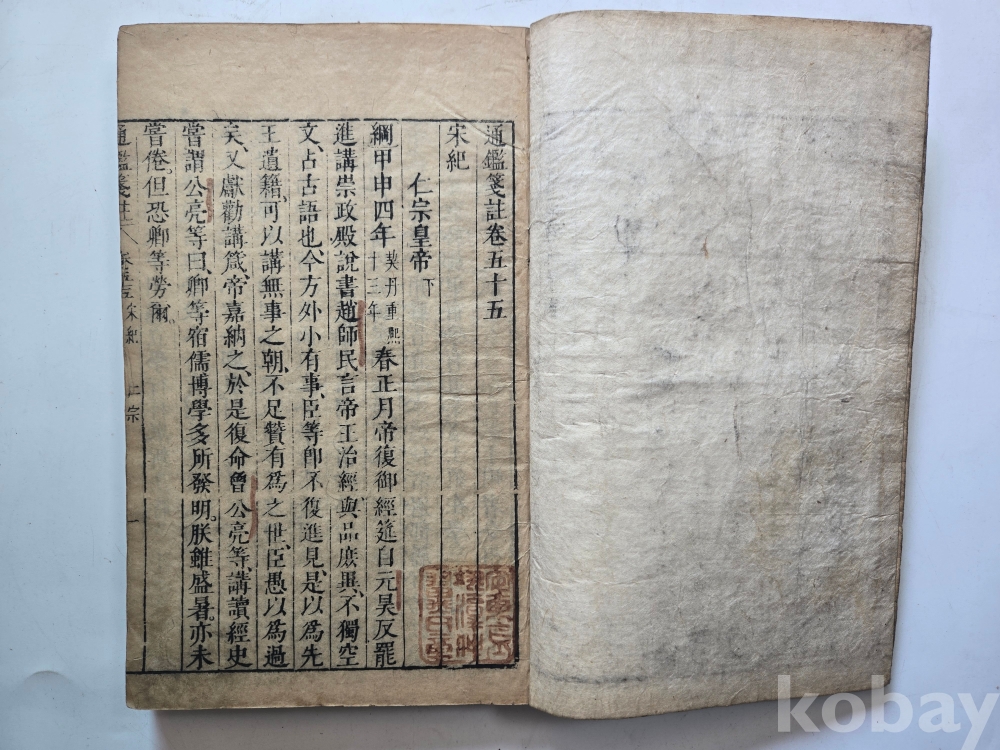 通鑑箋註卷五十五
宋紀
仁宗皇帝下
綱甲申四年契丹重熙十三年春正月帝復御經筵自元昊反罷
進講崇政殿說書趙師民言帝王治經與品庶異不獨空
文占古語也今方外小有事臣等卽不復進見是以爲先
王遺籍可以講無事之朝不足贊有爲之世臣愚以爲過
矣又獻勸講箴帝嘉納之於是復命曾公亮等講讀經史
嘗謂公亮等曰卿等宿儒博學多所發明朕雖盛暑亦未
嘗倦但恐卿等勞爾
通鑑箋註 宋紀 仁宗 一
kobay